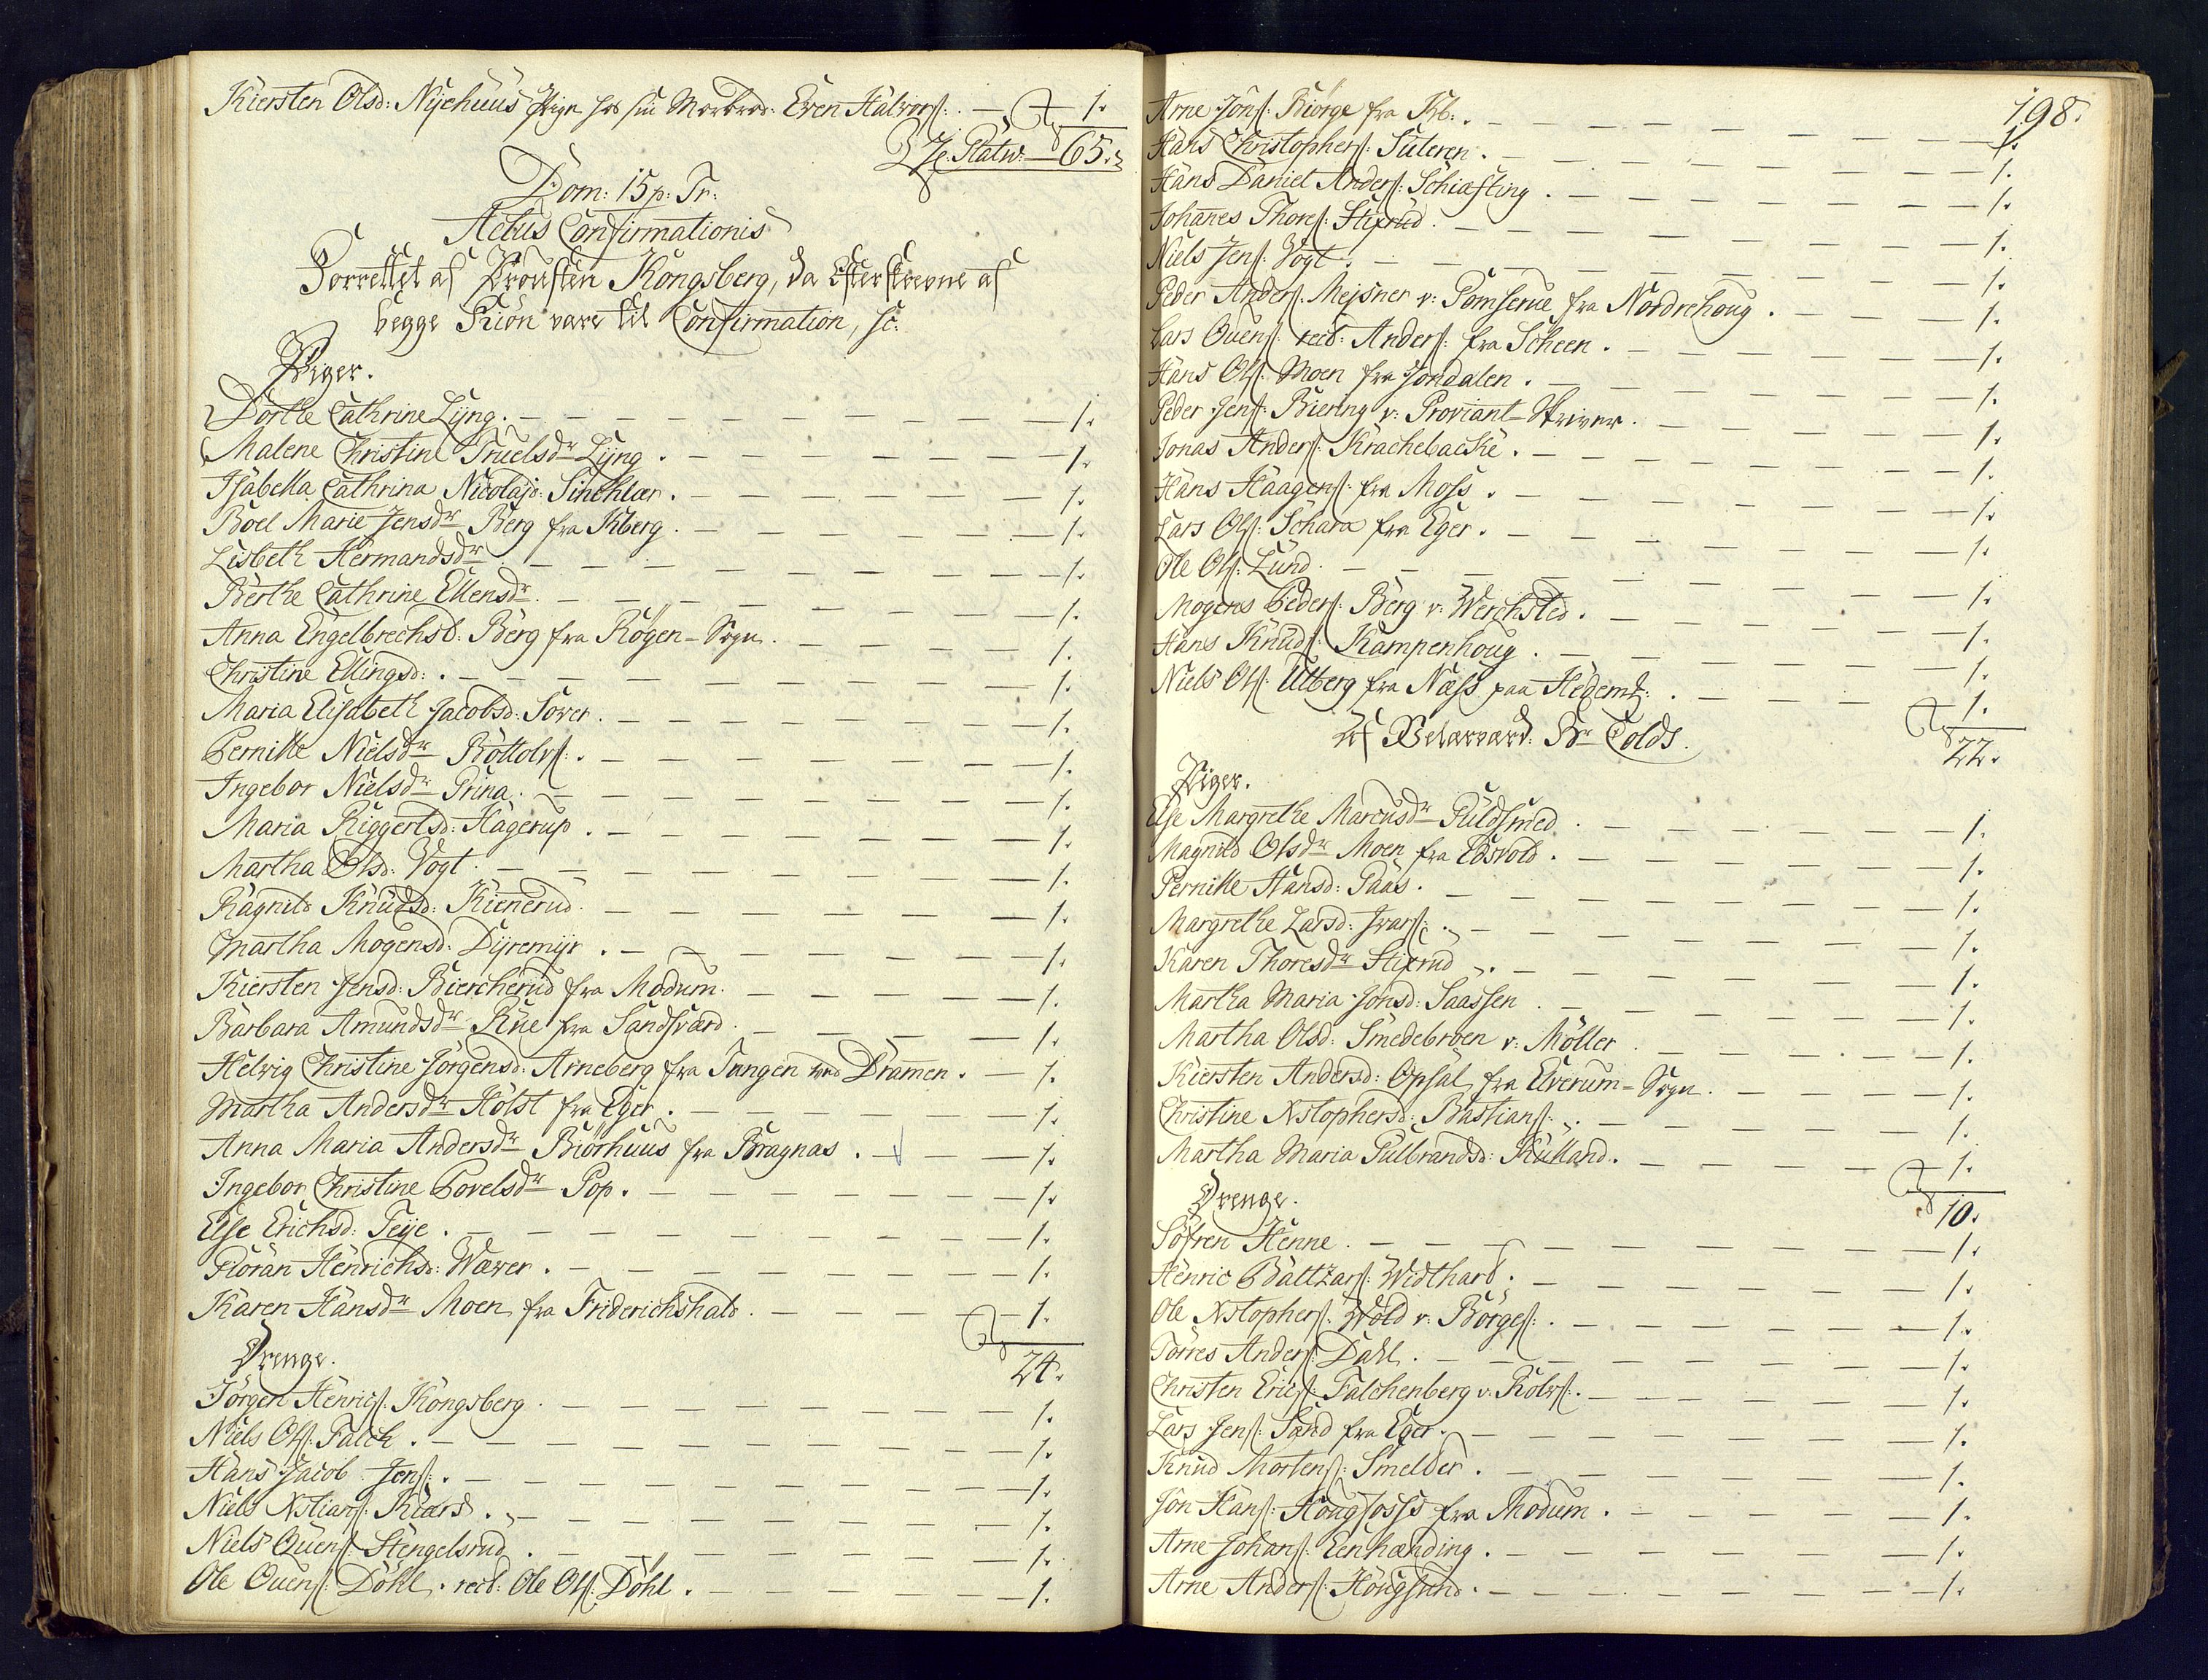 Kiersten Olsd: Nyehuus Pige hos sin Morbror: Even Halvors: . — 1.
65.
Dom: 15 p: Tr:
Actus Confirmationis
Forrettet af Provsten Kongsberg, da Efterskrevne af
begge Kiøn vare til Confirmation, sc:
Piger.
Dorthe Cathrine Lyng. — 1.
Malene Christine Truelsdr Lyng. — 1.
Isabella Cathrina Nicolajs: Sinchlær. — 1.
Boel Marie Jensdr Berg fra Kberg. — 1.
Lisbeth Hermandsdr — 1.
Berthe Cathrine Ellensdr. — 1.
Anna Engelbrechsd: Berg fra Røgen-Sogn. — 1.
Christine Ellingsd: . — 1.
Maria Elisabeth Jacobsd: Sover. — 1.
Pernille Nielsdr Bottolvs: . — 1.
Ingebor Nielsdr Prina. — 1.
Maria Riggertsd: Hagerup. — 1.
Martha Olsd: Vogt. — 1.
Ragnild Knudsd: Kienerud. — 1.
Martha Mogensd: Dyremyr. — 1.
Kiersten Jensd: Biercherud fra Modum. — 1.
Barbara Amundsdr Rue fra Sandsværd. — 1.
Helvig Christine Jørgensd: Arneberg fra Tangen ved Dramen. — 1.
Martha Andersdr Holst fra Eger. — 1.
Anna Maria Andersdr Biørhuus fra Bragnæs. — 1.
Ingebor Christine Povelsdr Pop. — 1.
Else Erichsd: Teye. — 1.
Giøran Henrichsd: Wæver. — 1.
Karen Hansdr Moen fra Friderichshald. — 1.
24.
Drenge.
Jørgen Henrics: Kongsberg. — 1.
Niels Ols: Falch. — 1.
Hans Jacob Jens: . — 1.
Niels Xstians: Kiærs. — 1.
Niels Ouens: Stengelsrud. — 1.
Ole Ouens: Døhl. rect: Ole Ols: Døhl. — 1.
198.
Arne Jons: Biørge fra Kb: . — 1.
Hans Christophers: Suteren. — 1.
Hans Daniel Anders: Schiafting. — 1.
Johanes Thores: Stixrud. — 1.
Niels Jens: Vogt. — 1.
Peder Anders: Mejsner v: Gomserue fra Nordrehoug. — 1.
Lars Ouens: rect: Anders: fra Scheen. — 1.
Hans Ols: Moen fra Jondalen. — 1.
Peder Jens: Biering v: Proviant-Skriver. — 1.
Jonas Anders: Krachebacke. — 1.
Hans Haagens: fra Moss. — 1.
Lars Ols: Schara fra Eger. — 1.
Ole Ols: Lund. — 1.
Mogens Peders: Berg v: Werchsted. — 1.
Hans Knuds: Kampenhoug. — 1.
Niels Ols: Ulberg fra Næss paa Hedem: . — 1.
22.
Af Hr Colds.
Piger.
Else Margrethe Marcusdr Guldsmed. — 1.
Magnild Olsdr Moen fra Edsvold. — 1.
Pernille Hansd: Gaas. — 1.
Margrethe Larsd: Ivars: . — 1.
Karen Thoresdr Stixrud. — 1.
Martha Maria Jonsd: Saassen. — 1.
Martha Olsd: Smedebroen v: Møller. — 1.
Kiersten Andersd: Opsal fra Elverum-Sogn. — 1.
Christine Xstophersd: Bastians: . — 1.
Martha Maria Gulbrandsd: Rulland. — 1.
10.
Drenge.
Søfren Henne. — 1.
Henric Baltzars: Widthard. — 1.
Ole Xstophers: Wold v: Børges: . — 1.
Torres Anders: Dahl. — 1.
Christen Erics: Falchenberg v: Rolvs: . — 1.
Lars Jens: Sand fra Eger. — 1.
Knud Mortens: Smelder. — 1.
Jon Hans: Hougfosss fra Modum. — 1.
Arne Johans: Eenhænding. — 1.
Arne Anders: Hougsund. — 1.